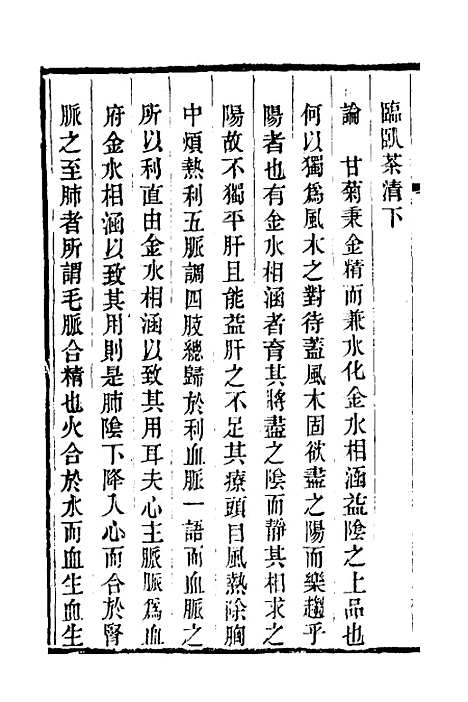 臨臥茶清下
論　甘菊秉金精而兼水化金水相涵益陰之上品也
何以獨爲風木之對待蓋風木固欲盡之陽而樂趨乎
陽者也有金水相涵者育其將盡之陰而靜其相求之
陽故不獨平肝且能益肝之不足其療頭目風熱除胸
中煩熱利五脈調四肢總歸於利血脈一語而血脈之
所以利直由金水相涵以致其用耳夫心主脈脈爲血
府金水相涵以致其用則是肺陰下降入心而合於腎
脈之至肺者所謂毛脈合精也火合於水而血生血生